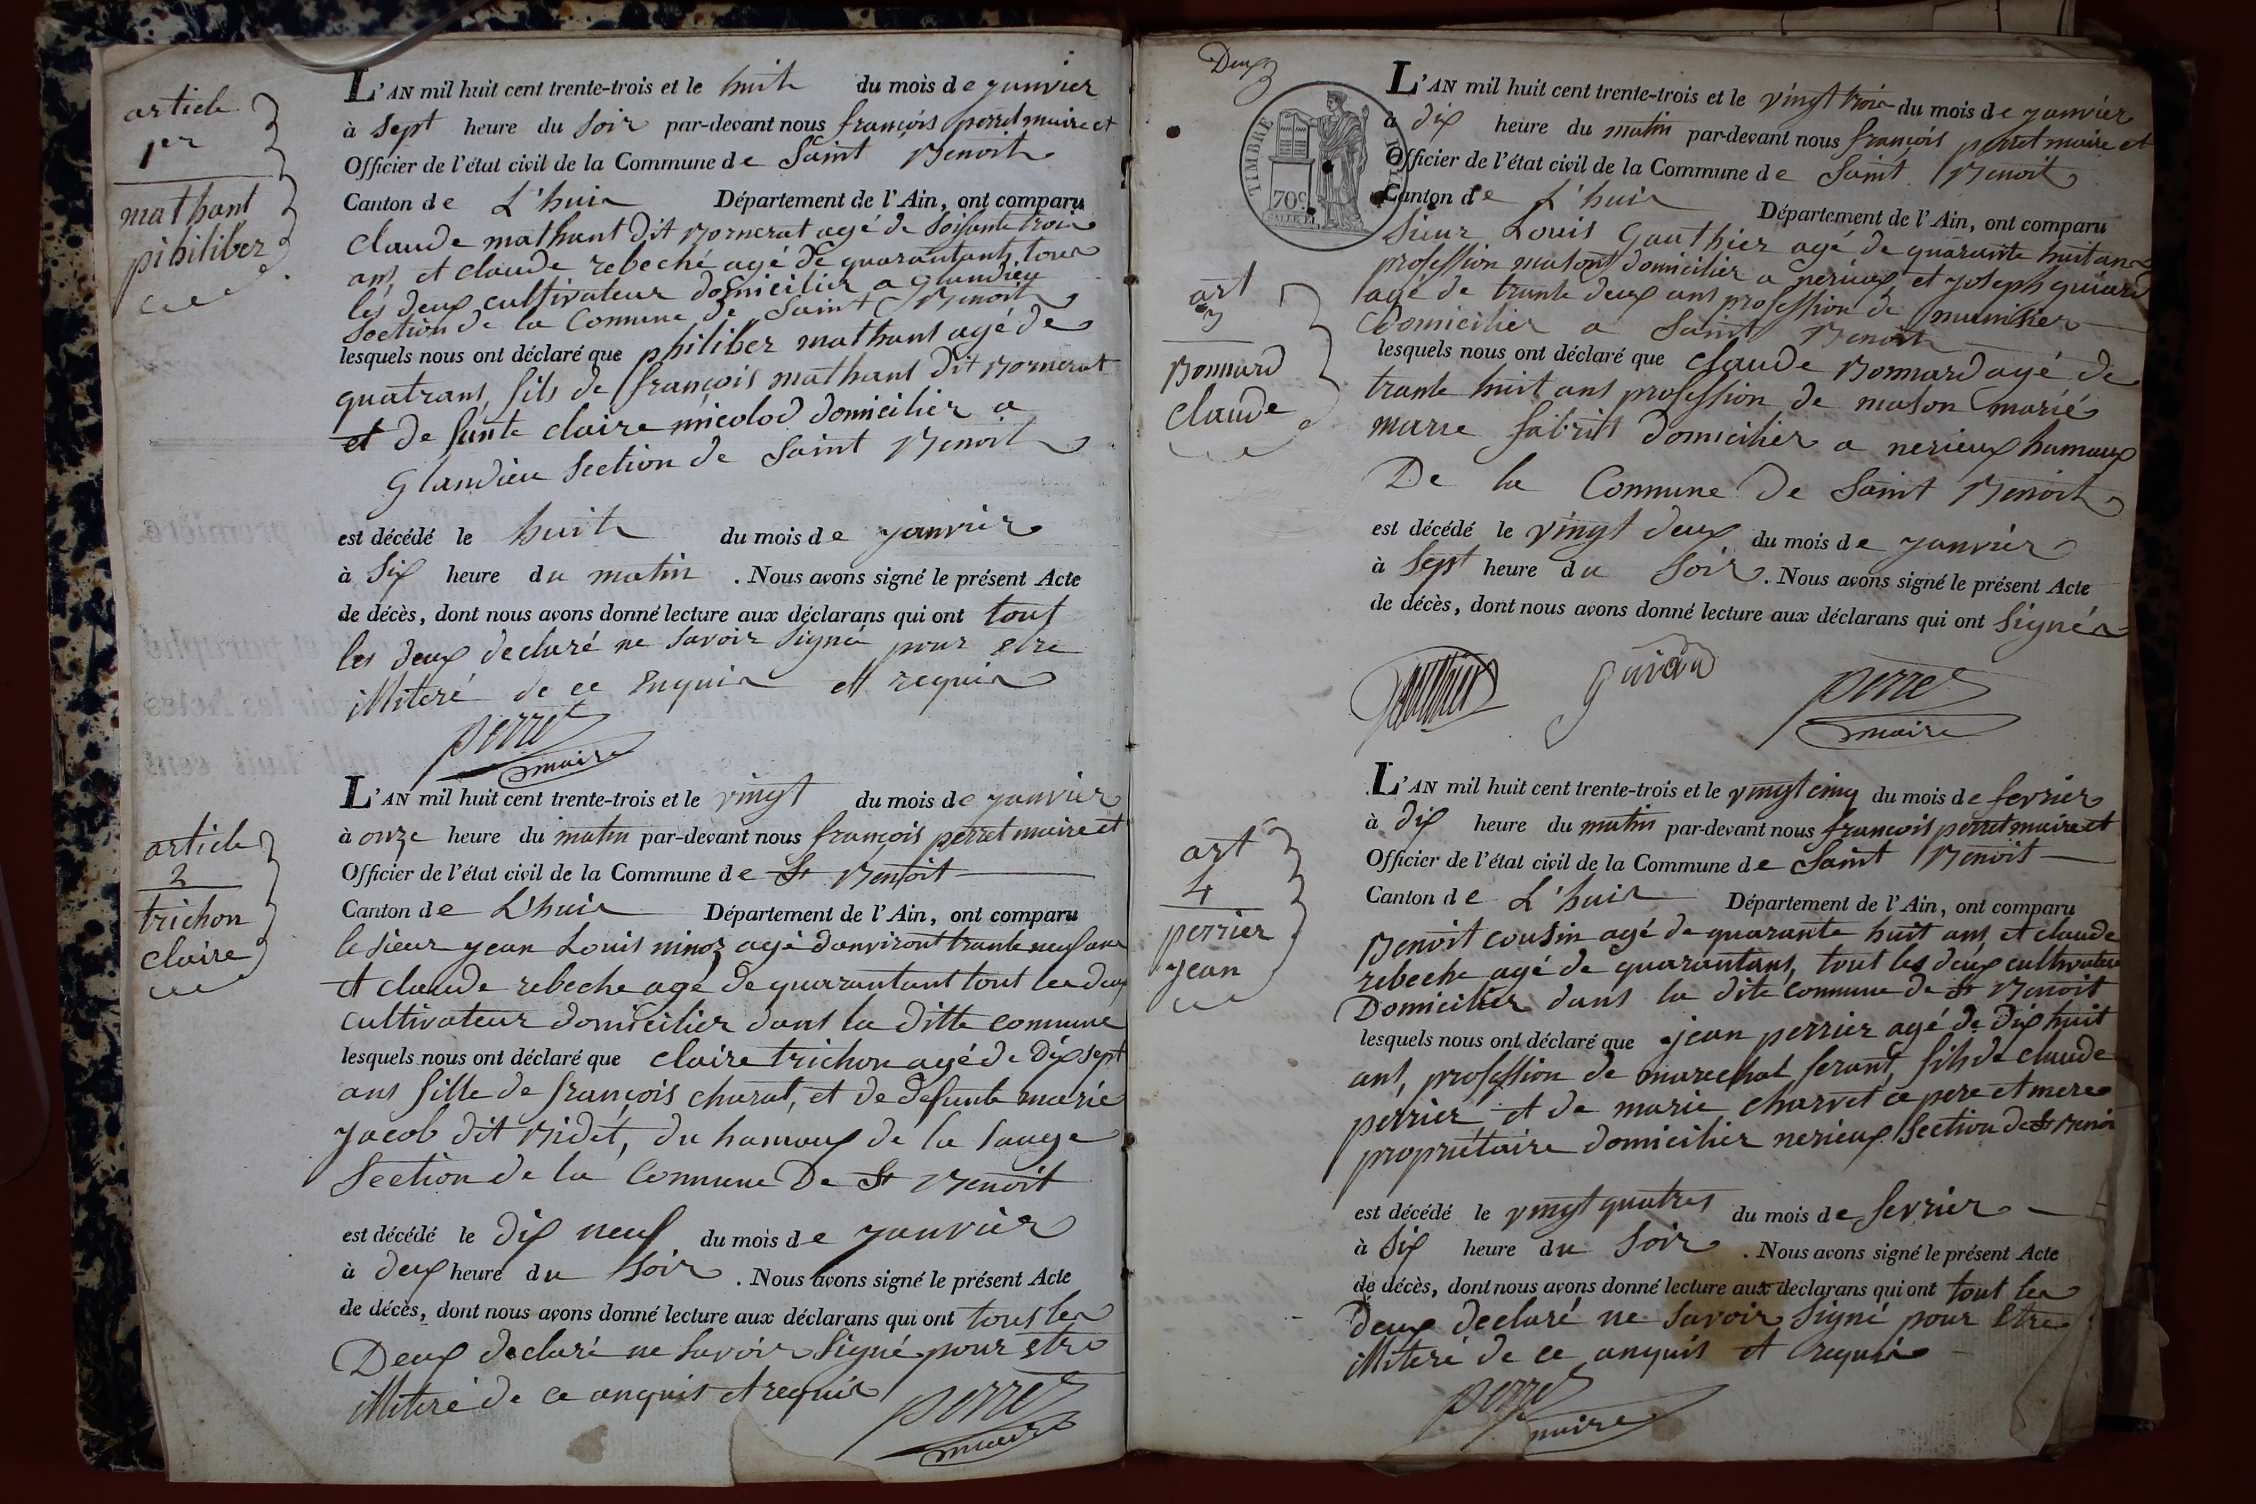 article
1er
mathant
philiber
L'AN mil huit cent trente-trois et le huit du mois de janvier
à sept heure du soir par-devant nous françois perret maire et
Officier de l'état civil de la Commune de Saint Benoit
Canton de L'huis Département de l'Ain, ont comparu
Claude mathant dit Bornerat agé de soisante trois
ans, et claude rebeché agé de quarantans, tous
les deux cultivateur domicilier a glandieu
Section de la Commune de Saint Benoit
lesquels nous ont déclaré que philiber mathant agé de
quatrans, fils de françois mathant dit Bornerat
et de funte claire micolod domicilier a
Glandieu Section de Saint Benoit
est décédé le huit du mois de janvier
à six heure du matin . Nous avons signé le présent Acte
de décès, dont nous avons donné lecture aux déclarans qui ont tout
les deux declaré ne savoir signé pour etre
illiteré de ce enquis et requis
perret
maire
article
2
trichon
claire
L'AN mil huit cent trente-trois et le vingt du mois de janvier
à onze heure du matin par-devant nous françois perret maire et
Officier de l'état civil de la Commune de St Benoit
Canton de L'huis Département de l'Ain, ont comparu
le sieur jean Louis ninoz agé danviront trante neuf ans
et claude rebeche agé de quarantant tout les deux
cultivateur domicilier dans la ditte commune
lesquels nous ont déclaré que claire trichon agé de dix sept
ans fille de françois charat, et de defunte marie
jacob dit Bidet, du hamaux de la sauge
Section de la Commune De St Benoit
est décédé le dix neuf du mois de janvier
à deux heure du soir . Nous avons signé le présent Acte
de décès, dont nous avons donné lecture aux déclarans qui ont tous les
Deux declaré ne savoir signé pour etre
illiteré de ce anquis et requis
perret
maire
Deux
TIMBRE
70c
art
3
Bonnard
claude
L'AN mil huit cent trente-trois et le vingt trois du mois de janvier
à dix heure du matin par-devant nous françois perret maire et
Officier de l'état civil de la Commune de Saint Benoit
Canton de L'huis Département de l'Ain, ont comparu
Sieur Louis Gauthier agé de quarante huit ans
profession mason domicilier a nerieux, et joseph guiard
agé de trante deux ans profession de
Domicilier a Saint Benoit
lesquels nous ont déclaré que Claude Bonnard agé de
trante huit ans profession de mason marié
marie domicilier a nerieux hamaux
De la Commune De Saint Benoit
est décédé le vingt deux du mois de janvier
à Sept heure du Soir . Nous avons signé le présent Acte
de décès, dont nous avons donné lecture aux déclarans qui ont signés
Gauthier guiard perret
maire
art
4
perrier
jean
L'AN mil huit cent trente-trois et le vingt cinq du mois de fevrier
à dix heure du matin par-devant nous françois perret maire et
Officier de l'état civil de la Commune de Saint Benoit
Canton de L'huis Département de l'Ain, ont comparu
Benoit cousin agé de quarante huit ans et claude
rebeche agé de quarantans, tout les deux cultivateur
Domicilier dans la dite commune de St Benoit
lesquels nous ont déclaré que jean perrier agé de dix huit
ans, profession de marechal ferant, fils de claude
perrier et de marie charvet ce pere et mere
propriétaire domicilier nerieux Section de St Benoi
est décédé le vingt quatres du mois de fevrier
à six heure du Soir . Nous avons signé le présent Acte
de décès, dont nous avons donné lecture aux declarans qui ont tout les
deux declaré ne savoir signé pour etre
illiteré de ce anquis et requis
perret
maire